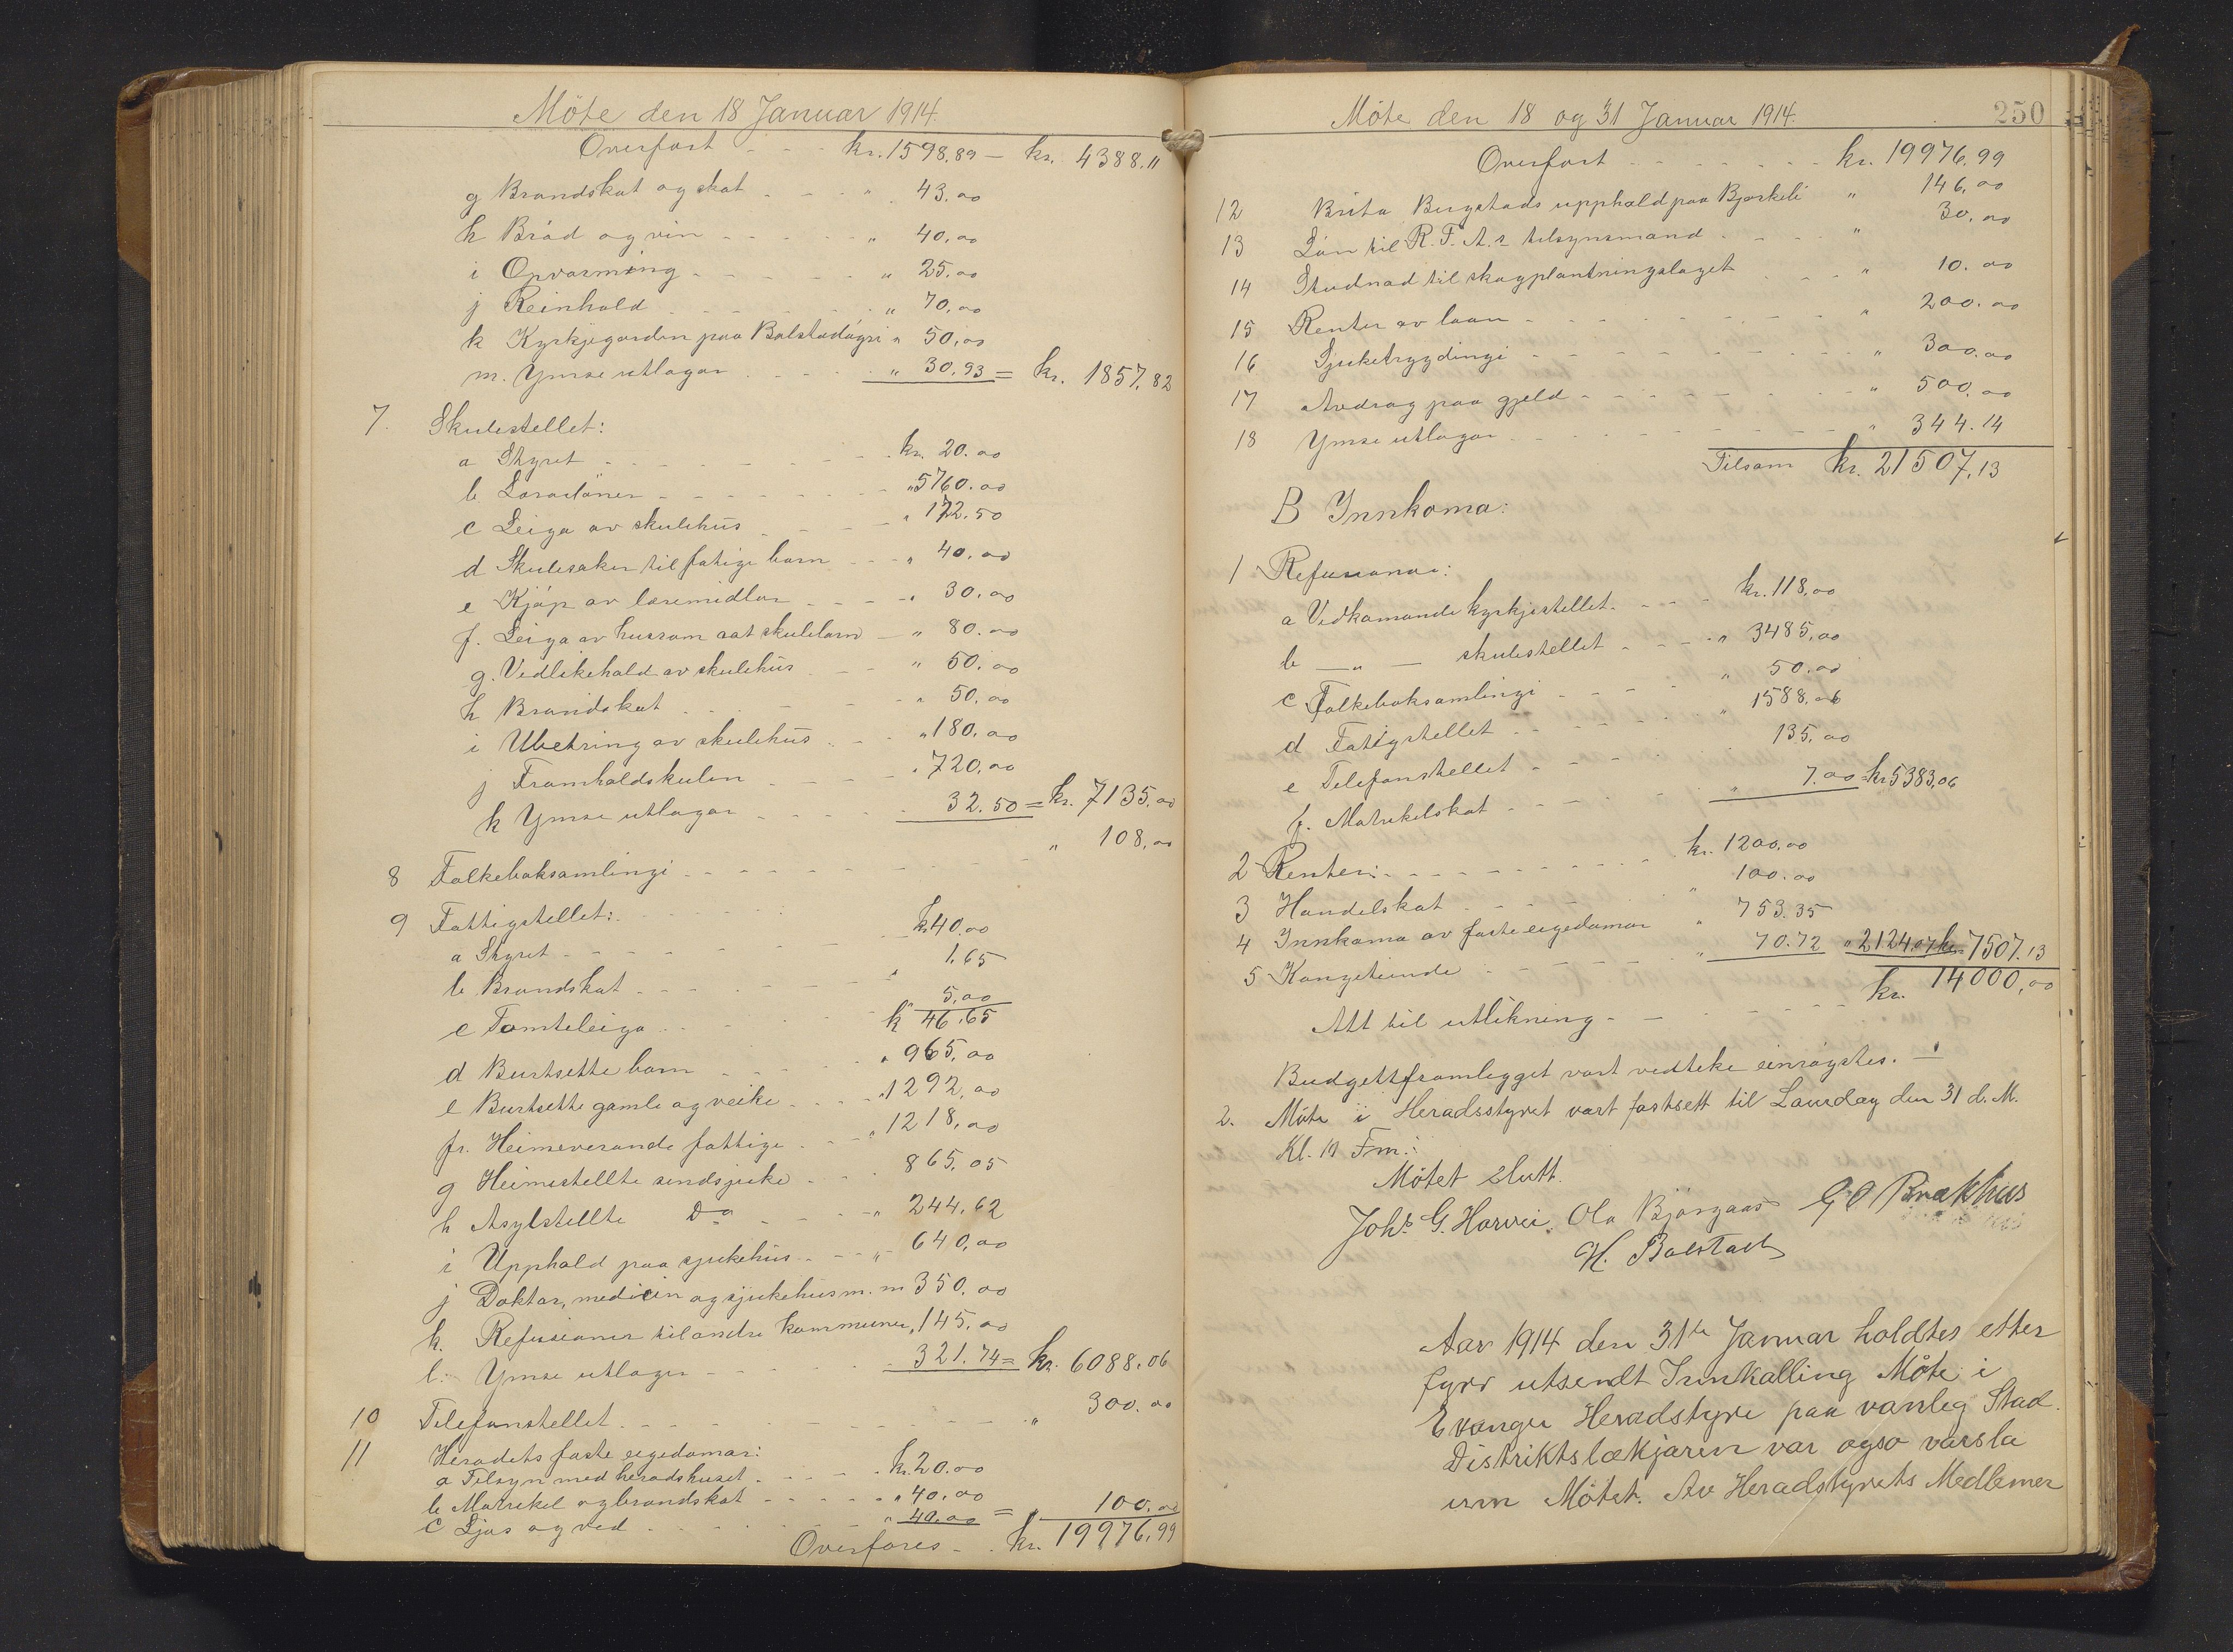 Möte den 18 Januar 1914.
Overført - - - kr. 1598,89 — kr. 4388.11
g Brandskat og skat - - - " 43.00
h Bröd og vin - - - - - " 40,00
i Opvarming - - - - - " 25.00
j Reinhold - - - - - " 70,00
k Kyrkjegarden paa Bolstadöyri " 50,00
m. Ymse utlagar - - - - " 30,93 = kr. 1857,82
7. Skulestellet:
a Styret - - - - - - - kr. 20.00
b Lærarlöner - - - - - - - " 5760.00
c Leiga av skulehus - - - " 172.50
d Skulesaker til fatige born - - - " 40,00
e Kjöp av læremidlar - - - - " 30.00
f. Leiga av husrom aat skuleborn - " 80.00
g. Vedlikehald av skulehus - - " 50.00
h Brandskat - - - - - " 50,00
i Ubetring av skulehus - - - " 180,00
j Framhaldskulen - - - - " 720,00
k Ymse utlagar - - - - - 32.50 = kr. 7135.00
8 Folkeboksamlingi - - - - - - - " 108,00
9 Fattigstellet:
a Styret - - - - - - kr 40.00
b Brandskat - - - - - " 1.65
c Tomteleiga - - - - " 5,00
kr 46.65
d Burtsette born - - - - " 965,00
e Burtsette gamle og veike - - - " 1292,00
f. Heimeverande fattige - - - " 1218,00
g Heimestellte sindsjuke - - - 865,05
h Asylstellte Do - - - " 244,62
i Upphald paa sjukehus - - - " 640,00
j Doktor, medicin og sjukehus m. m 350.00
k. Refusioner til andre kommuner, 145.00
l. Ymse utlagar - - - - - 321.74 = kr. 6088.06
10 Telefonstellet - - - - - - - - " 300.00
11 Heradets faste eigedomar:
a Tilsyn med heradshuset - - - - kr. 20.00
b Matrikel og brandskat - - - - " 40,00
c Ljos og ved - - - - - " 40,00 = " 100,00
Overføres - - kr. 19976,99
Möte den 18 og 31 Januar 1914.
250
Overført - - - - - - - kr. 19976.99
12 Brita Bergstads upphald paa Bjørkeli " 146,00
13 Lön til R. F. A.s tilsynsmand - - - - " 30,00
14 Studnad til skogplantningslaget - - - " 10.00
15 Renter av laan - - - - - - - " 200.00
16 Sjuketrygdingi - - - - - - - " 300.00
17 Avdrag paa gjeld - - - - - - - " 500,00
18 Ymse utlagar - - - - - - - " 344.14
Tilsam kr. 21507,13
B Innkoma:
1 Refusionar:
a Vedkomande kyrkjestellet - - - kr. 118,00
b — " — skulestellet - - - " 3485,00
c Folkeboksamlingi - - - - " 50.00
d Fatigstellet - - - - - " 1588,06
e Telefonstellet - - - - 135,00
f. Matrikelskat - - - - - " 7.00 = kr 5383,06
2 Renter: - - - - - - - - kr. 1200,00
3 Handelskat - - - - - " 100.00
4 Innkoma av faste eigedomar " 753.35
5 Kongetiende - - - - - " 70.72 " 2124.07 kr 7507.13
Att til utlikning - - - - - - kr. 14000,00
Budgettframlegget vart vedteke einrøystes. —
2. Møte i Heradsstyret vart fastsett til Laurdag den 31 d. M.
Kl. 10 Fm.
Møtet slutt.
Johs. G. Horvei. Ola Bjørgaas G O Brækhus
H. Bolstad
Aar 1914 den 31te Januar holdtes etter
fyrr utsendt Innkalling Møte i
Evanger Heradstyre paa vanleg Stad.
Distriktslækjaren var ogso varsla
um Møtet. Av Heradstyrets Medlemer